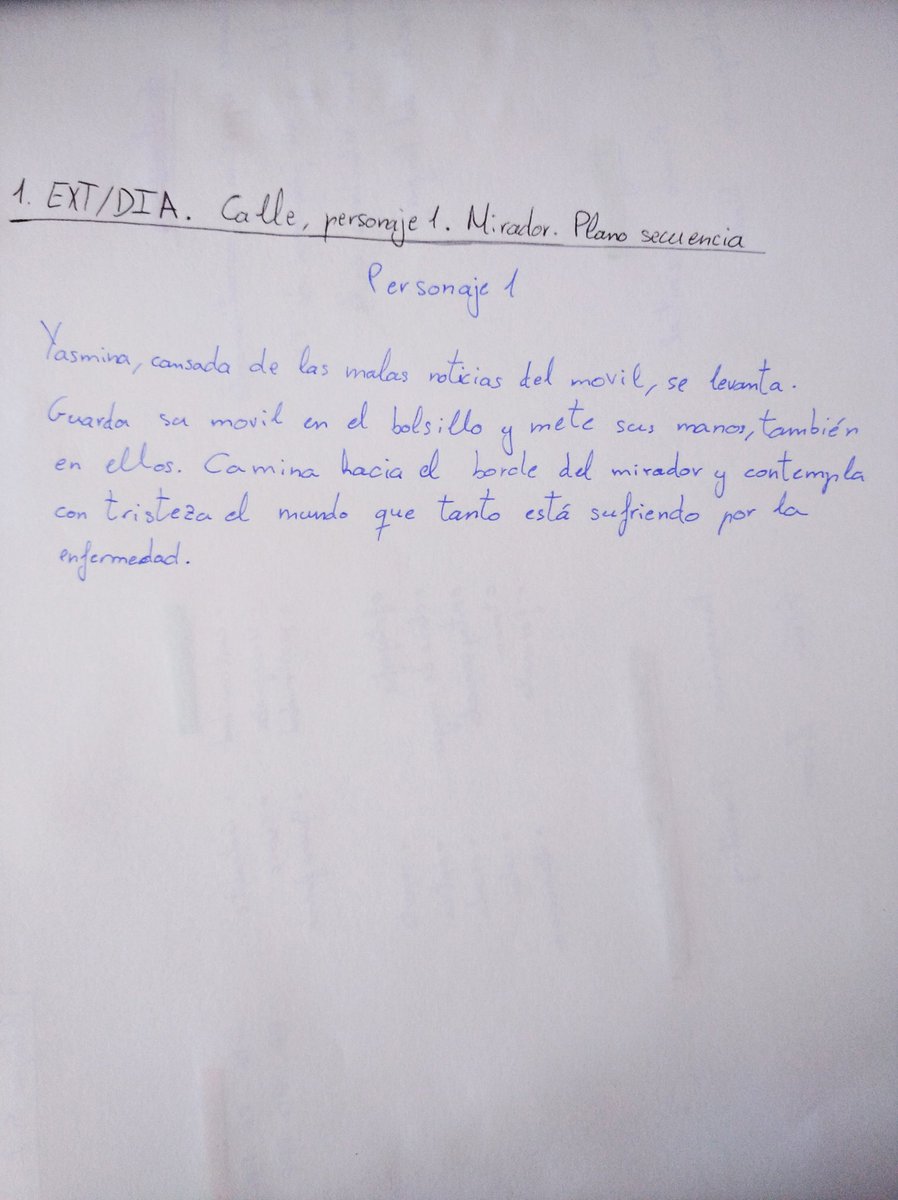 1. EXT/DIA. Calle, personaje 1. Mirador. Plano secuencia
Personaje 1
Yasmina, cansada de las malas noticias del movil, se levanta.
Guarda su movil en el bolsillo y mete sus manos, también
en ellos. Camina hacia el borde del mirador y contempla
con tristeza el mundo que tanto está sufriendo por la
enfermedad.